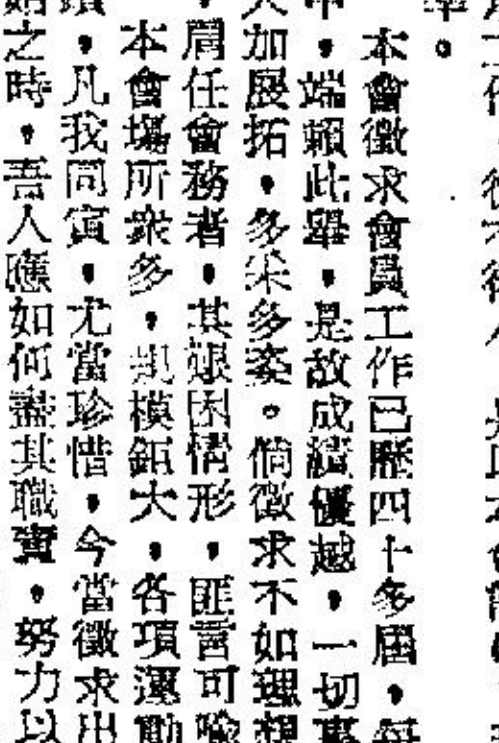 本會徵求會員工作已歷四十多屆，每
，端賴此舉，是故成績優越，一切事
加展拓，多采多姿。倘徵求不如理想
，屬任會務者，其艱困情形，匪言可喻
本會塲所衆多，規模鉅大，各項運動
，凡我同寅，尤當珍惜，今當徵求出
之時，吾人應如何盡其職責，努力以